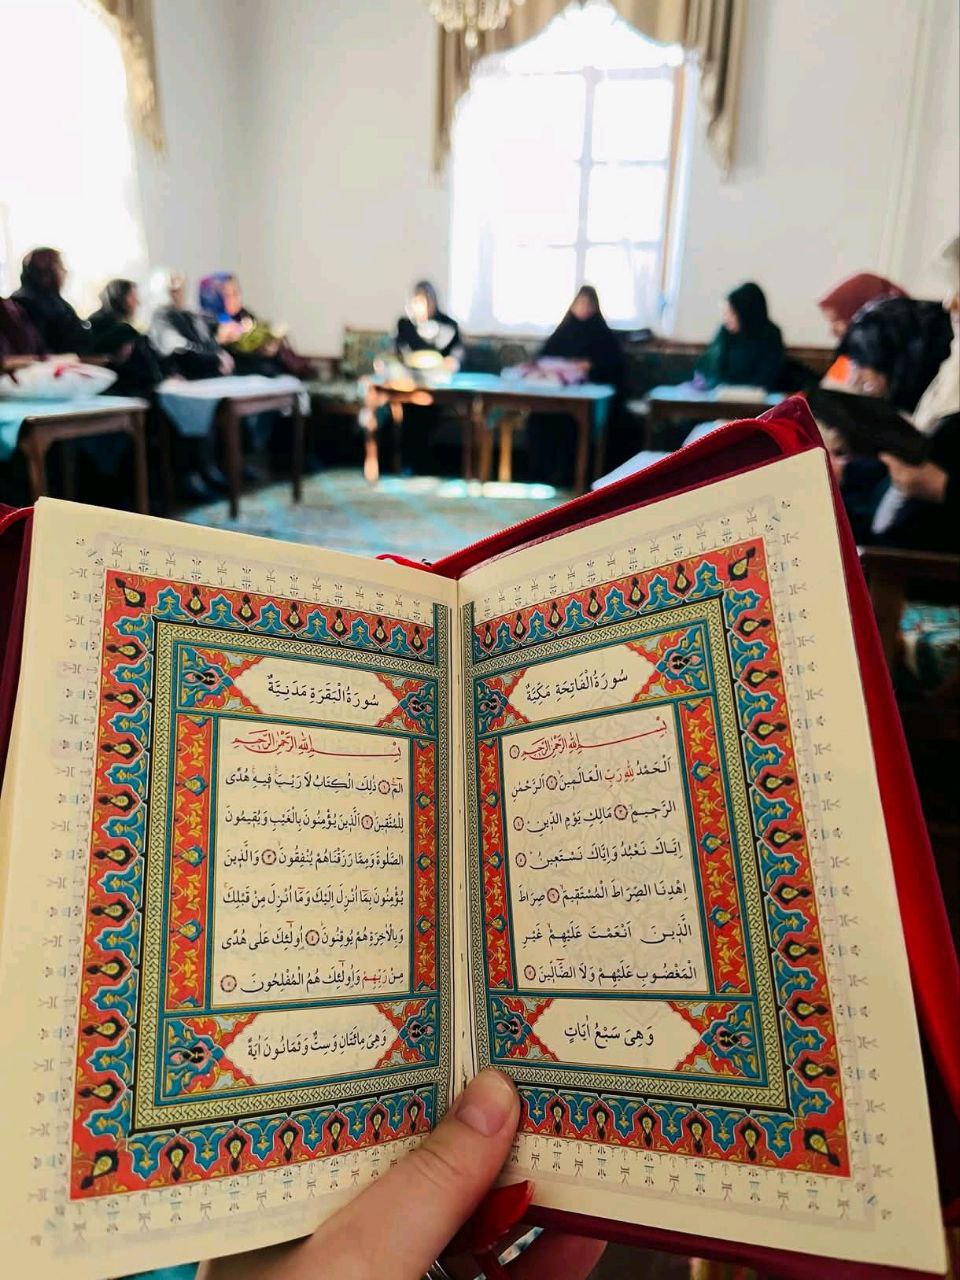 سُورَةُ الْفَاتِحَةِ مَكِّيَّةٌ
بِسْمِ اللّٰهِ الرَّحْمٰنِ الرَّحِيمِ ﴿١﴾
اَلْحَمْدُ لِلّٰهِ رَبِّ الْعَالَمِينَ ﴿٢﴾ اَلرَّحْمٰنِ
الرَّحِيمِ ﴿٣﴾ مَالِكِ يَوْمِ الدِّينِ ﴿٤﴾
اِيَّاكَ نَعْبُدُ وَاِيَّاكَ نَسْتَعِينُ ﴿٥﴾
اِهْدِنَا الصِّرَاطَ الْمُسْتَقِيمَ ﴿٦﴾ صِرَاطَ
الَّذِينَ اَنْعَمْتَ عَلَيْهِمْ غَيْرِ
الْمَغْضُوبِ عَلَيْهِمْ وَلَا الضَّالِّينَ ﴿٧﴾
وَهِيَ سَبْعُ اٰيَاتٍ
سُورَةُ الْبَقَرَةِ مَدَنِيَّةٌ
بِسْمِ اللّٰهِ الرَّحْمٰنِ الرَّحِيمِ
الٓمٓ ﴿١﴾ ذٰلِكَ الْكِتَابُ لَا رَيْبَ فِيهِ هُدًى
لِلْمُتَّقِينَ ﴿٢﴾ اَلَّذِينَ يُؤْمِنُونَ بِالْغَيْبِ وَيُقِيمُونَ
الصَّلٰوةَ وَمِمَّا رَزَقْنَاهُمْ يُنْفِقُونَ ﴿٣﴾ وَالَّذِينَ
يُؤْمِنُونَ بِمَٓا اُنْزِلَ اِلَيْكَ وَمَٓا اُنْزِلَ مِنْ قَبْلِكَ
وَبِالْاٰخِرَةِ هُمْ يُوقِنُونَ ﴿٤﴾ اُو۬لٰٓئِكَ عَلٰى هُدًى
مِنْ رَبِّهِمْ وَاُو۬لٰٓئِكَ هُمُ الْمُفْلِحُونَ ﴿٥﴾
وَهِيَ مِائَتَانِ وَسِتٌّ وَثَمَانُونَ اٰيَةً